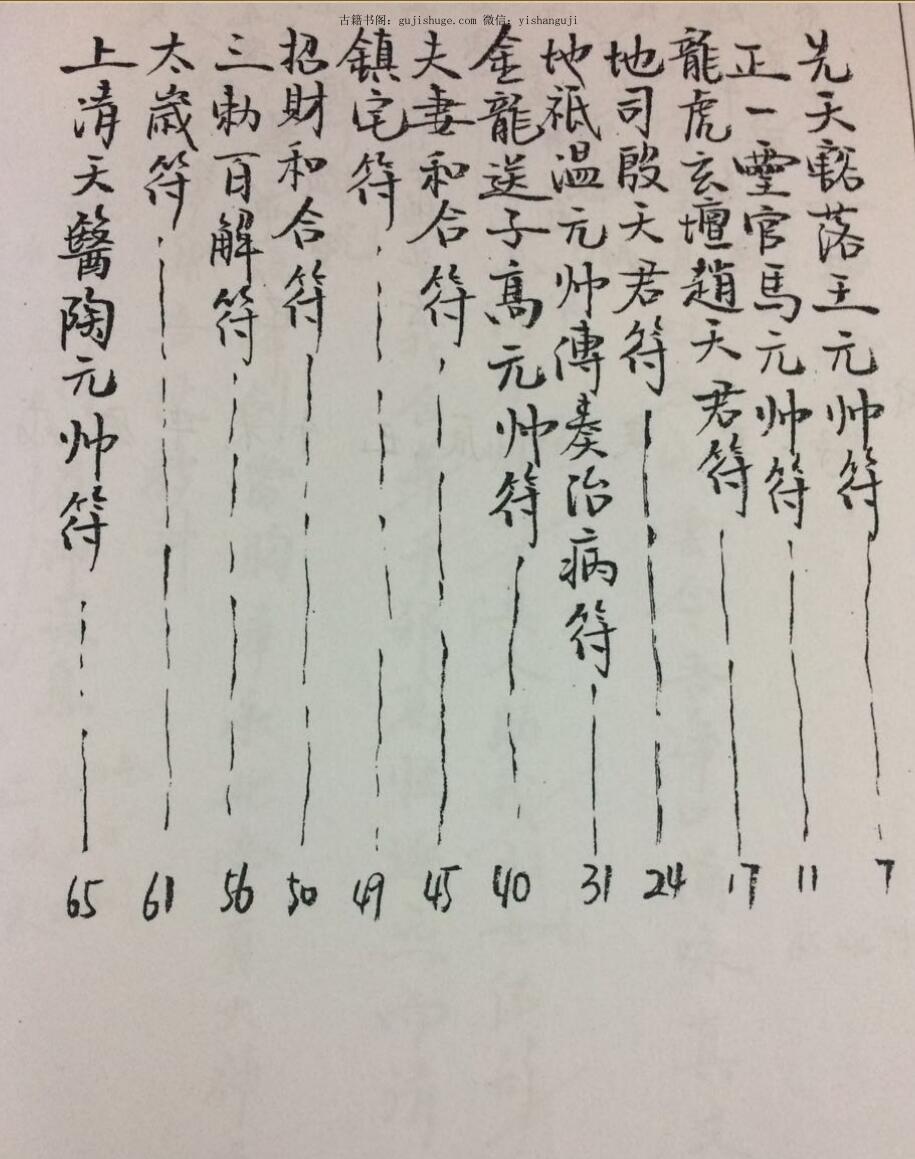 古籍书阁：gujishuge.com 微信：yishanguji
先天豁落王元帅符 7
正一靈官馬元帅符 11
龍虎玄壇趙天君符 17
地司殷天君符 24
地祇温元帅傳奏治病符 31
金龍送子高元帅符 40
夫妻和合符 45
鎮宅符 49
招財和合符 50
三勅百解符 56
太歲符 61
上清天醫陶元帅符 65